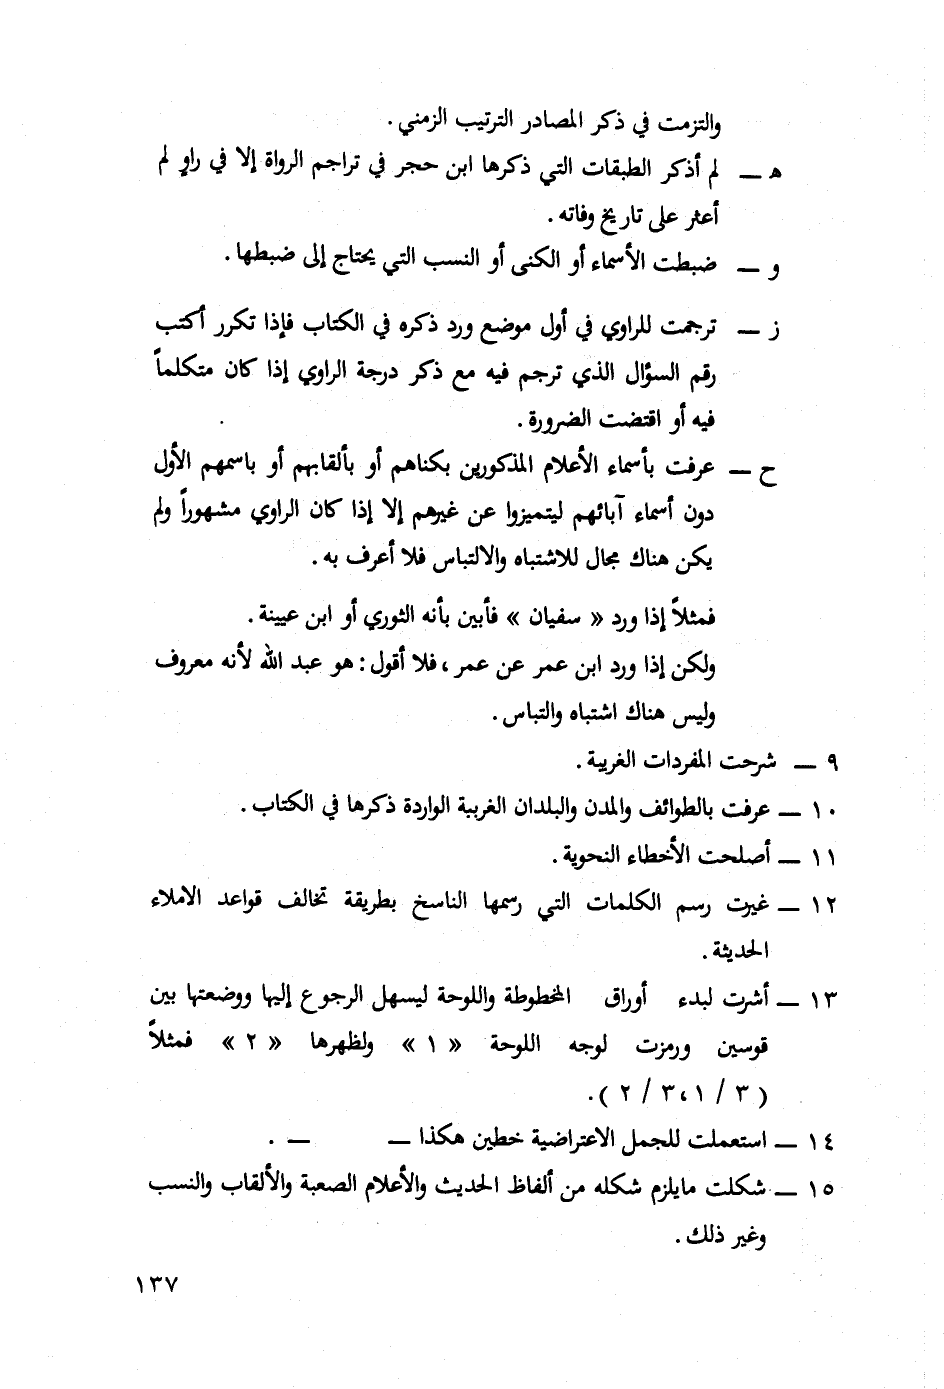 والتزمت في ذكر المصادر الترتيب الزمني .
هـ ــ لم أذكر الطبقات التي ذكرها ابن حجر في تراجم الرواة إلا في راوٍ لم
أعثر على تاريخ وفاته .
و ــ ضبطت الأسماء أو الكنى أو النسب التي يحتاج إلى ضبطها .
ز ــ ترجمت للراوي في أول موضع ورد ذكره في الكتاب فإذا تكرر أكتب
رقم السؤال الذي ترجم فيه مع ذكر درجة الراوي إذا كان متكلماً
فيه أو اقتضت الضرورة .
ح ــ عرفت بأسماء الأعلام المذكورين بكناهم أو بألقابهم أو باسمهم الأول
دون أسماء آبائهم ليتميزوا عن غيرهم إلا إذا كان الراوي مشهوراً ولم
يكن هناك مجال للاشتباه والالتباس فلا أعرف به .
فمثلاً إذا ورد « سفيان » فأبين بأنه الثوري أو ابن عيينة .
ولكن إذا ورد ابن عمر عن عمر ، فلا أقول : هو عبد الله لأنه معروف
وليس هناك اشتباه والتباس .
٩ ــ شرحت المفردات الغريبة .
١٠ ــ عرفت بالطوائف والمدن والبلدان الغريبة الواردة ذكرها في الكتاب .
١١ ــ أصلحت الأخطاء النحوية .
١٢ ــ غيرت رسم الكلمات التي رسمها الناسخ بطريقة تخالف قواعد الاملاء
الحديثة .
١٣ ــ أشرت لبدء أوراق المخطوطة واللوحة ليسهل الرجوع إليها ووضعتها بين
قوسين ورمزت لوجه اللوحة « ١ » ولظهرها « ٢ » فمثلاً
( ٣ / ١ ، ٣ / ٢ ) .
١٤ ــ استعملت للجمل الاعتراضية خطين هكذا ــ ــ .
١٥ ــ شكلت مايلزم شكله من ألفاظ الحديث والأعلام الصعبة والألقاب والنسب
وغير ذلك .
١٣٧